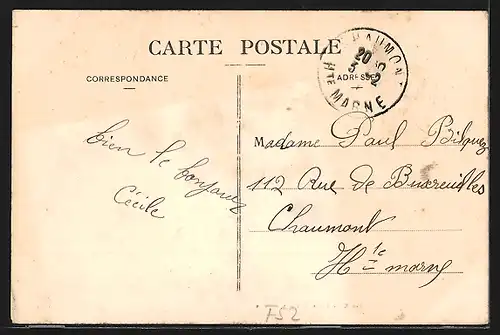 CARTE POSTALE
CORRESPONDANCE
ADRESSE
CHAUMONT
20
5
HTE MARNE
bien le bonjour
Cécile
Madame Paul Bilquez
112 Rue de Buxereuilles
Chaumont
Hte marne
F52